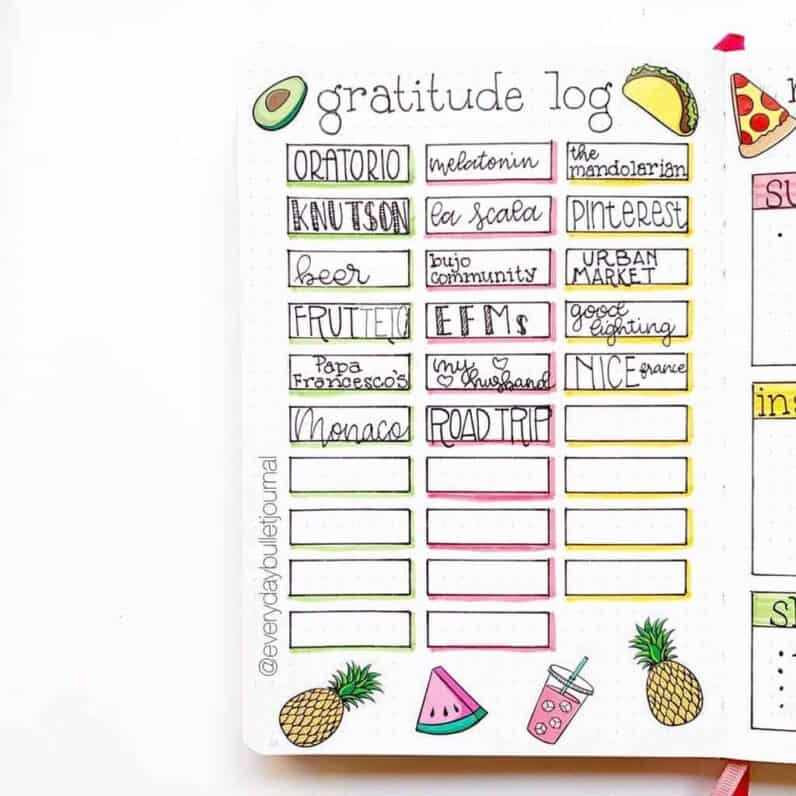 gratitude log
ORATORIO
melatonin
the
mandolarian
KNUTSON
la scala
PINTEREST
beer
bujo
community
URBAN
MARKET
FRUTTETO
EFMs
good
lighting
Papa
Francesco's
my
husband
NICE france
Monaco
ROAD TRIP
@everydaybulletjournal